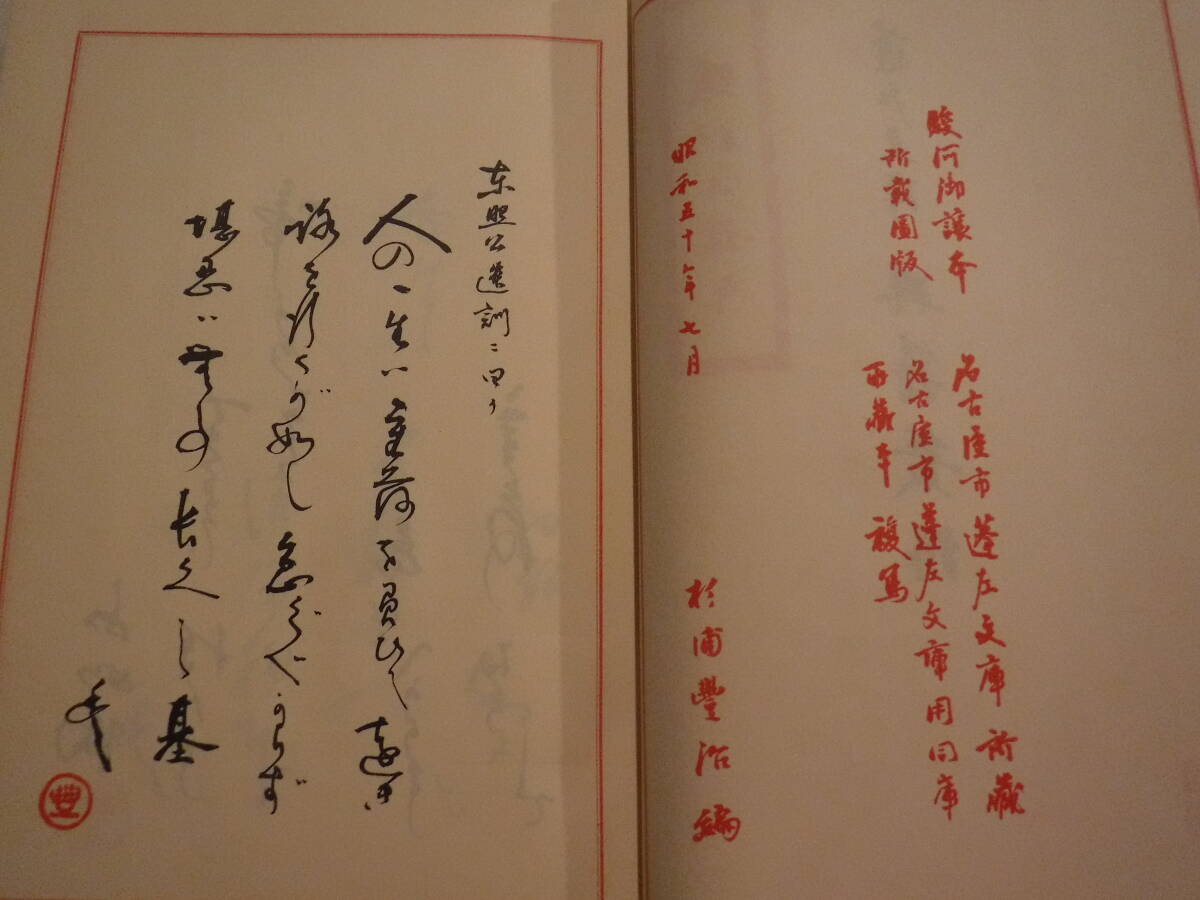 駿河御譲本 名古屋市蓬左文庫所蔵
所載圖版 名古屋市蓬左文庫用同庫
所蔵本複写
昭和五十年七月 於浦豐治編
東照公遺訓ニ曰ク
人の一生ハ重荷を負ひて遠き
路を行くが如し急ぐべからず
堪忍ハ無事長久之基
豊